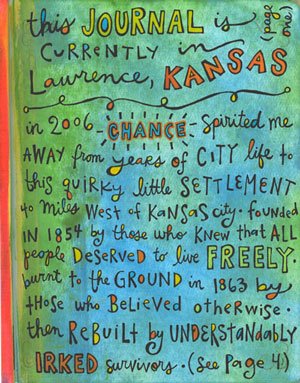 this JOURNAL is (page one)
CURRENTLY in
Lawrence, KANSAS
in 2006 - CHANCE - Spirited me
AWAY from years of CITY life to
this QUIRKY little SETTLEMENT
40 miles West of Kansas city. founded
IN 1854 by those who knew that ALL
people Deserved to live FREELY.
burnt to the GROUND in 1863 by
those who Believed otherwise.
then ReBuilt by UNDERSTANDABLY
IRKED survivors. (See Page 4.)